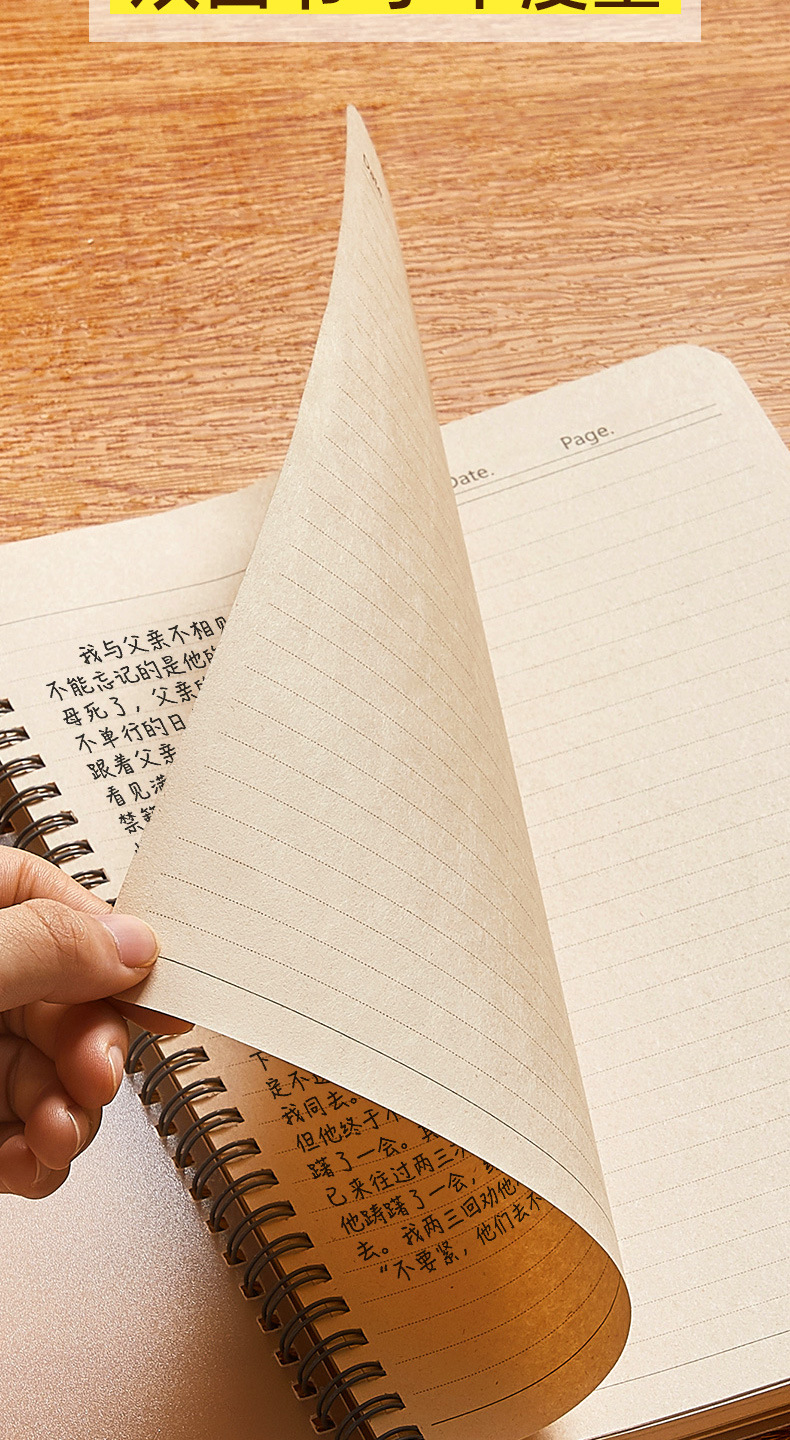 Date.
Page.
Date.
我与父亲不相见
不能忘记的是他的
母死了，父亲的
不单行的日
跟着父亲
看见满
禁簌
下
定不
我同去。
但他终于不
躇了一会。其
已来往过两三次
他踌躇了一会，终
去。我两三回劝他
“不要紧，他们去不